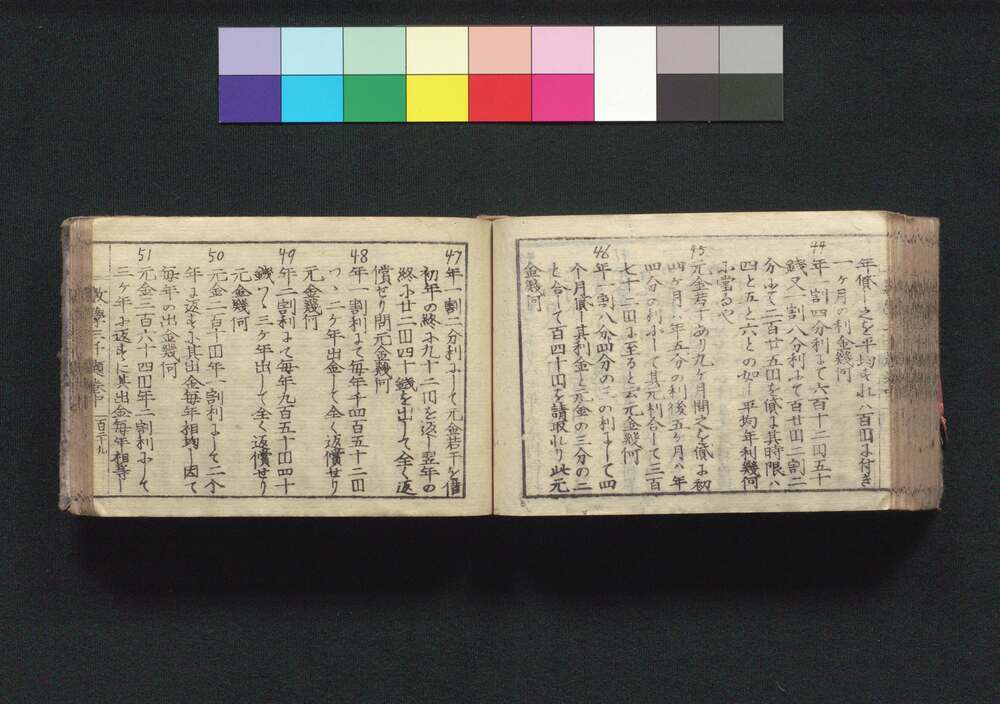 年償し之を平均すれハ百円に付き
一ヶ月の利金幾何
44
年一割四分利にて六百十二円五十
銭又一割八分利にて百廿円二割二
分にて二百廿五円を償よ其時限ハ
四と五と六との如し平均年利幾何
に當るや
45
元金若干あり九ヶ月間之を償よ初
四ヶ月ハ年五分の利後五ヶ月ハ年
四分の利にして其元利合して三百
七十二円に至ると云元金幾何
46
年一割八分四分の三の利にて四
个月償し其利金と元金の三分の二
と合して百四十円を請取れり此元
金幾何
47
年一割一分利にして元金若干を借
初年の終に九十二円を返し翌年の
終に廿二円四十銭を出して全く返
償せり問元金幾何
48
年一割利にて毎年千四百五十二円
つゝ二ヶ年出金して全く返償せり
元金幾何
49
年二割利にて毎年九百五十円四十
銭つゝ三ヶ年出して全く返償せり
元金幾何
50
元金二百十円年一割利にして二个
年に返すに其出金毎年相均し因て
毎年の出金幾何
51
元金三百六十四円年二割利にして
三ヶ年に返すに其出金毎年相等し
数學三千題巻中